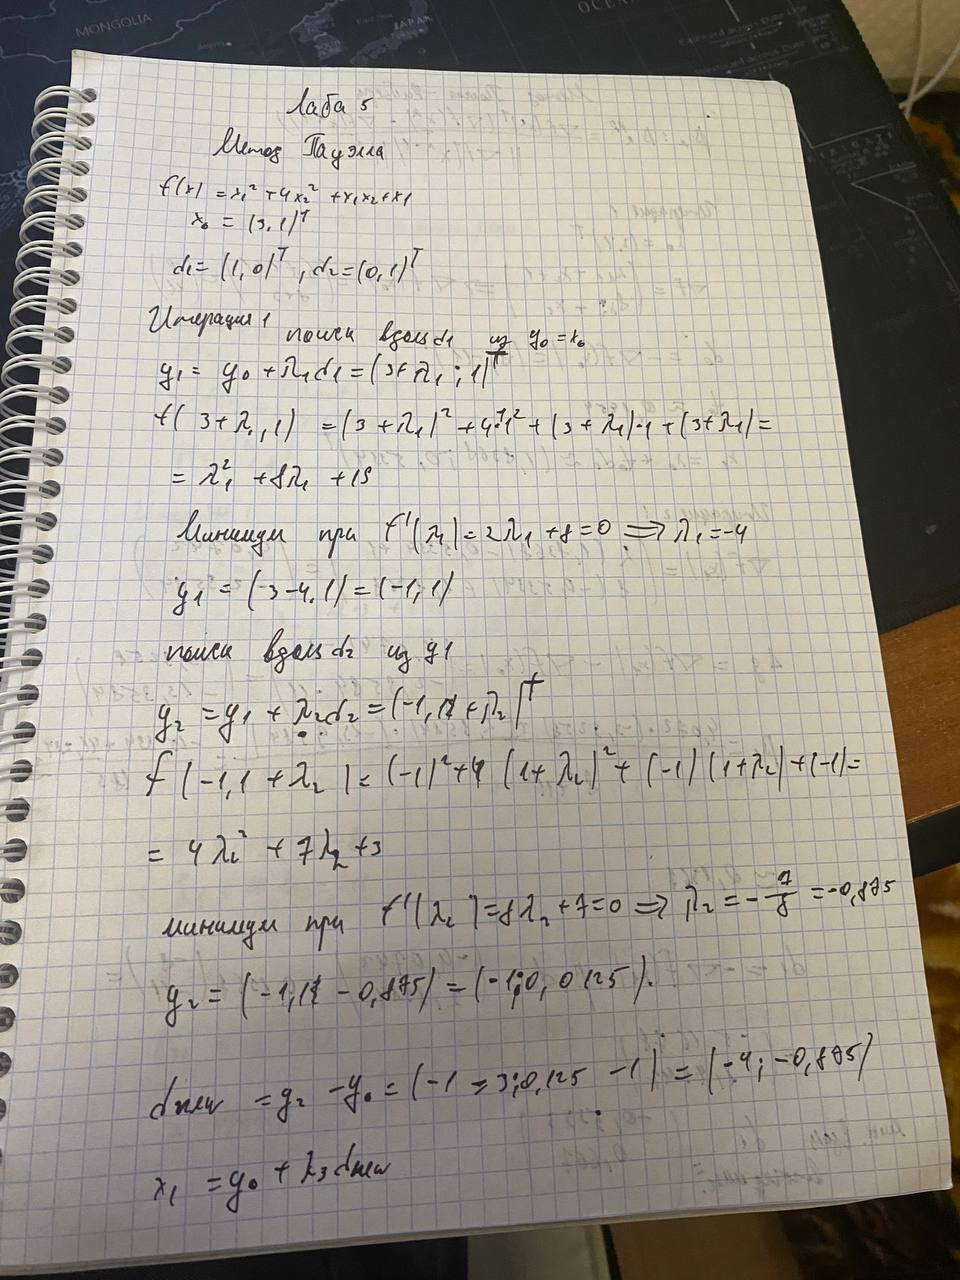 Лаба 5
Метод Пауэлла
f(x) = x₁² + 4x₂² + x₁x₂ + x₁
x₀ = (3, 1)ᵀ
d₁ = (1, 0)ᵀ, d₂ = (0, 1)ᵀ
Итерация 1 поиск вдоль d₁ из y₀ = x₀
y₁ = y₀ + λ₁d₁ = (3+λ₁; 1)ᵀ
f(3+λ₁, 1) = (3+λ₁)² + 4·1² + (3+λ₁)·1 + (3+λ₁) =
= λ₁² + 8λ₁ + 19
Минимум при f'(λ₁) = 2λ₁ + 8 = 0 ⟹ λ₁ = -4
y₁ = (3-4, 1) = (-1, 1)
поиск вдоль d₂ из y₁
y₂ = y₁ + λ₂d₂ = (-1, 1+λ₂)ᵀ
f(-1, 1+λ₂) = (-1)² + 4(1+λ₂)² + (-1)(1+λ₂) + (-1) =
= 4λ₂² + 7λ₂ + 3
минимум при f'(λ₂) = 8λ₂ + 7 = 0 ⟹ λ₂ = -7/8 = -0,875
y₂ = (-1, 1 - 0,875) = (-1; 0, 0125).
dnew = y₂ - y₀ = (-1 - 3; 0,125 - 1) = (-4; -0,875)
x₁ = y₀ + λ₃dnew